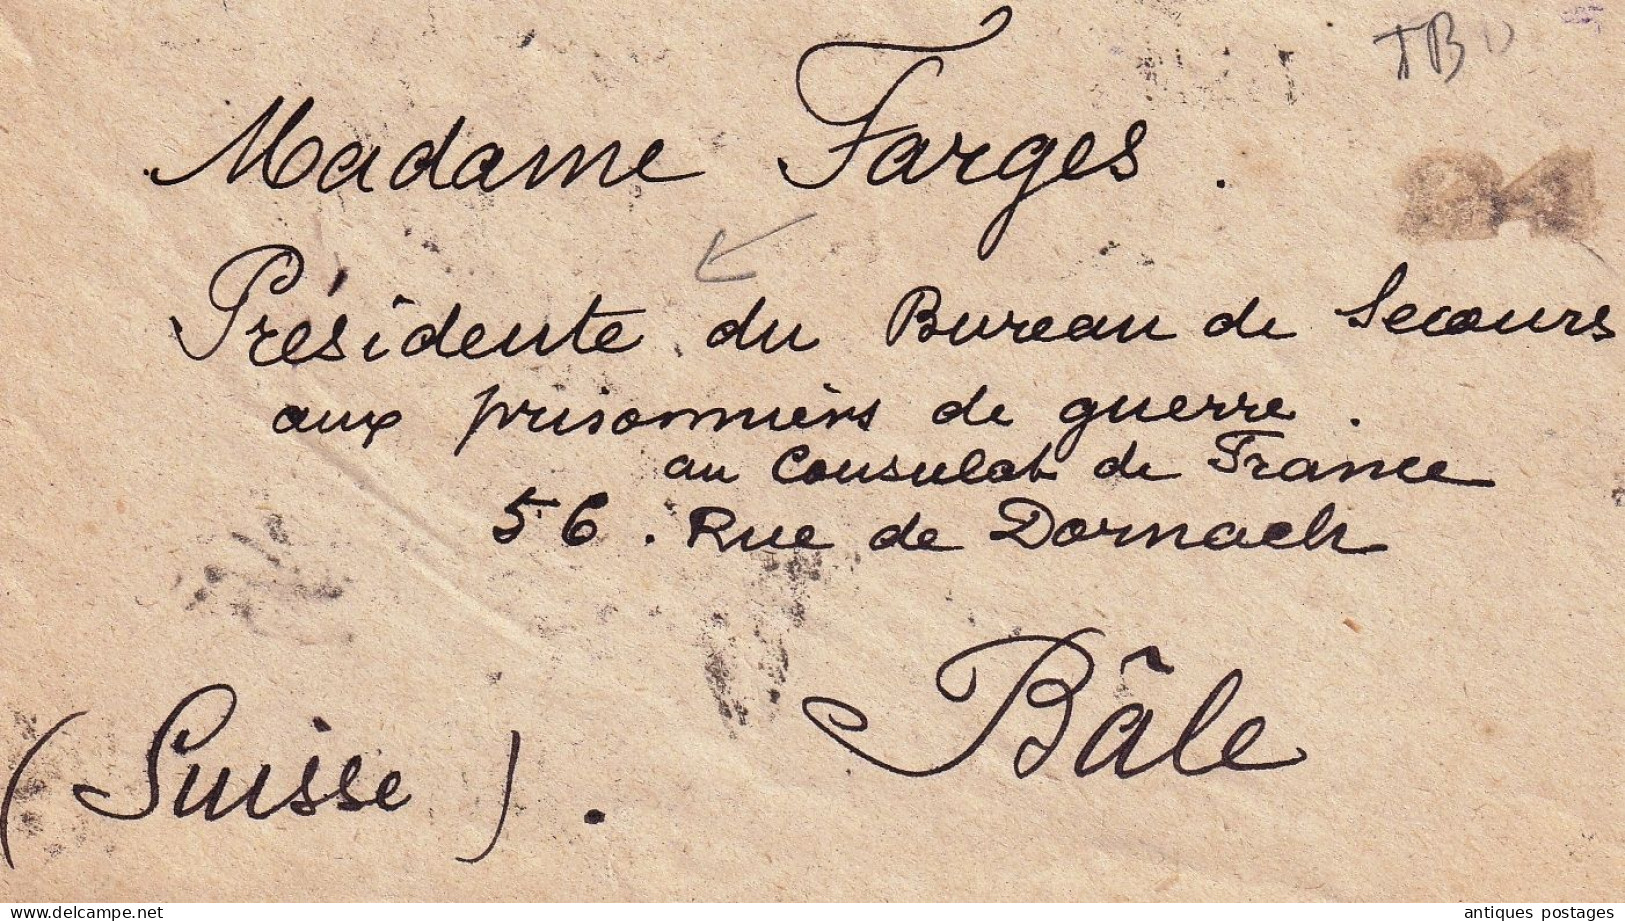 TB
Madame Farges.
Présidente du Bureau de Secours
aux prisonniers de guerre.
au Consulat de France
56. Rue de Dornach
Bâle
(Suisse).
www.delcampe.net
antiques postages